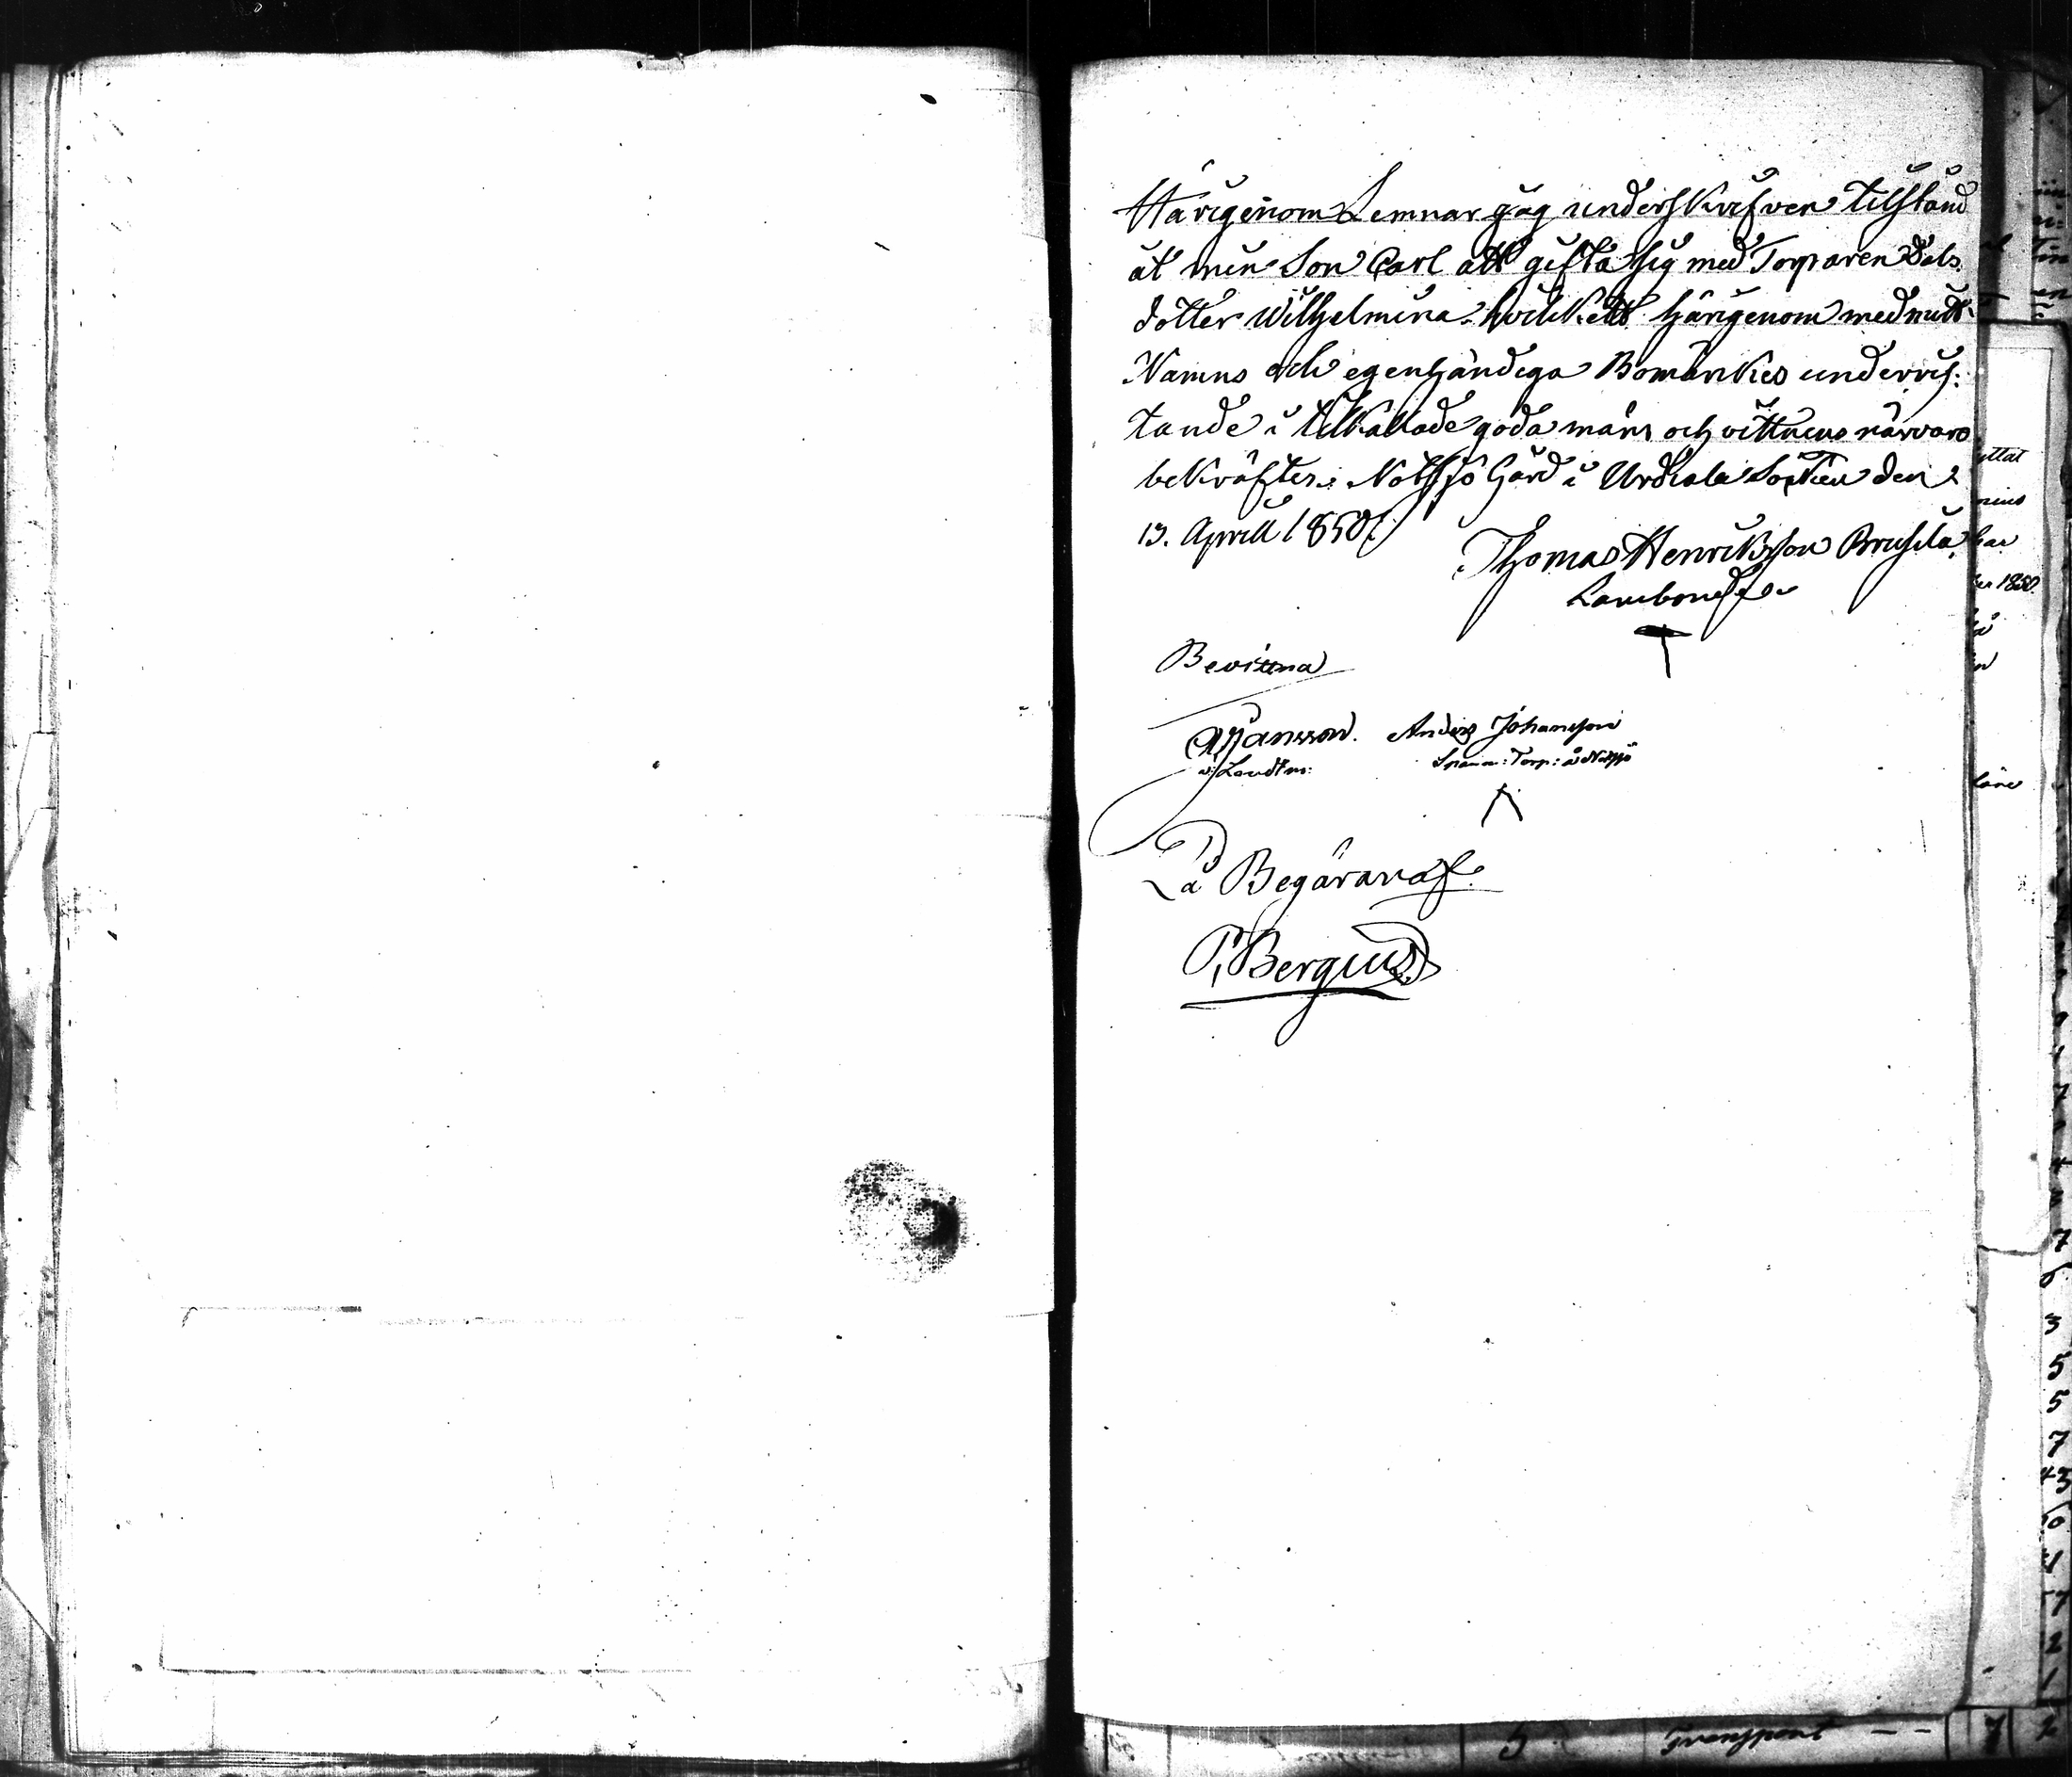 Härigenom Lemnar jag underskrifven tilstånd
åt min Son Carl att gifta sig med Torparen Dals
dotter Wilhelmina hvilkett härigenom med mitt
Namns och egenhändiga Bomärkies underris:
tande i tilkallade goda mäns och vittnens närvaro
bekräftes; Nötsjö Gård i Urdiala Sokn den
13. Aprill 1850./.
Thomas Henriksson Brusila
Landbonde
Bevittna
Mansson. Anders Johansson
Landtm: Torp: å Nötsjö
På Begäran af
P. Bergius
yttat
1850.
Transport - - 7
5
7
3
5
5
7
2
1